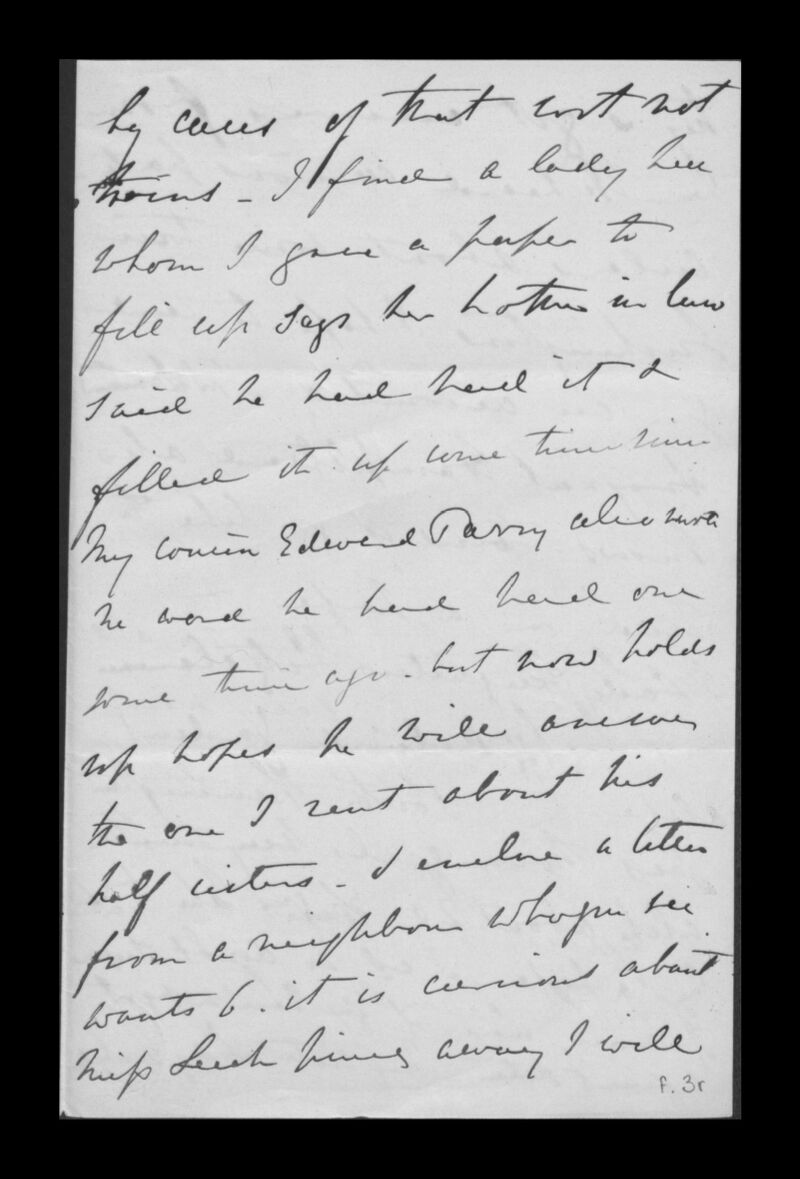 by cases of that sort not
twins - I find a lady here
whom I gave a paper to
fill up says her brother in law
said he had had it &
filled it up some time since
My cousin Edward Parry also wrote
he word he had had one
some time ago - but now holds
up hopes he will answer
the one I sent about his
half sisters - I enclose a letter
from a neighbour who you see
wants 6. it is curious about
Miss Leech away I will
f. 3r